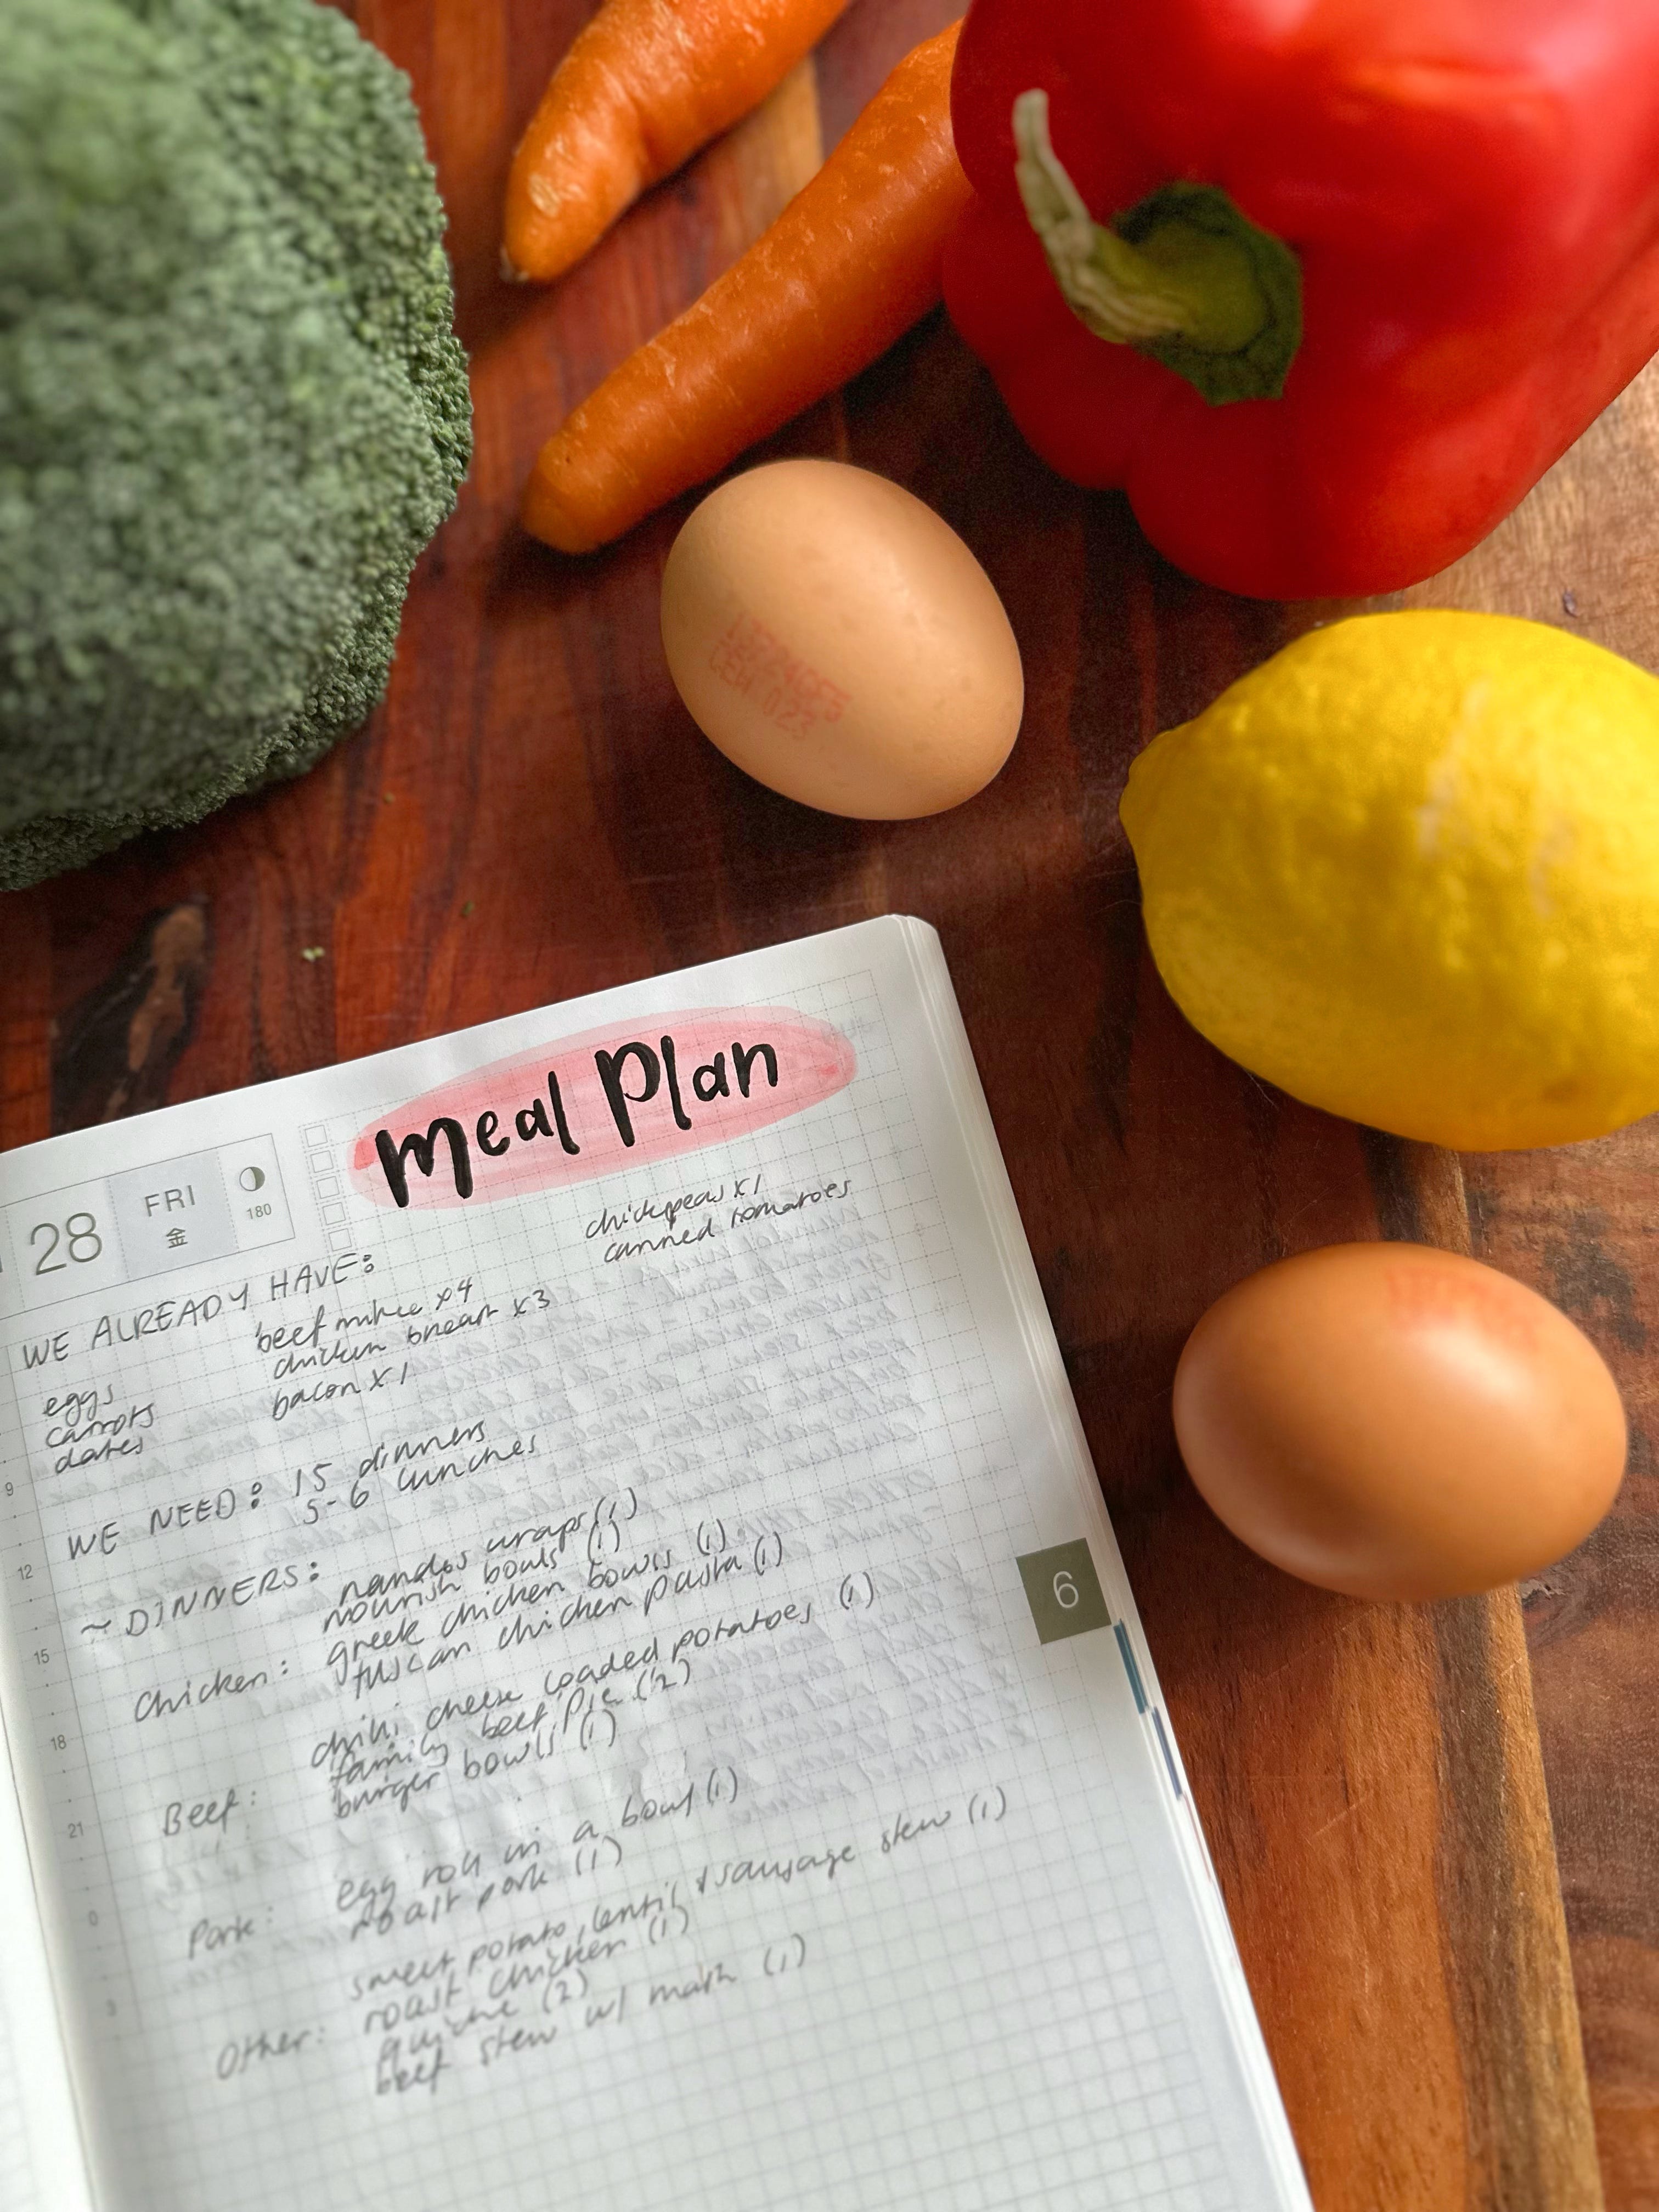 meal Plan
28 FRI
金
180
chickpeas x 1
canned tomatoes
WE ALREADY HAVE:
eggs
carrots
dates
beef mince x4
chicken breast x3
bacon x 1
WE NEED: 15 dinners
5-6 lunches
~ DINNERS:
Chicken: nandos wraps (1)
nourish bowls (1)
greek chicken bowls (1)
tuscan chicken pasta (1)
Beef: chilli cheese loaded potatoes (1)
family beef pie (2)
burger bowls (1)
Pork: egg roll in a bowl (1)
roast pork (1)
Other: sweet potato, lentil + sausage stew (1)
roast chicken (1)
quiche (2)
beef stew w/ mash (1)
9
12
15
18
21
0
3
6